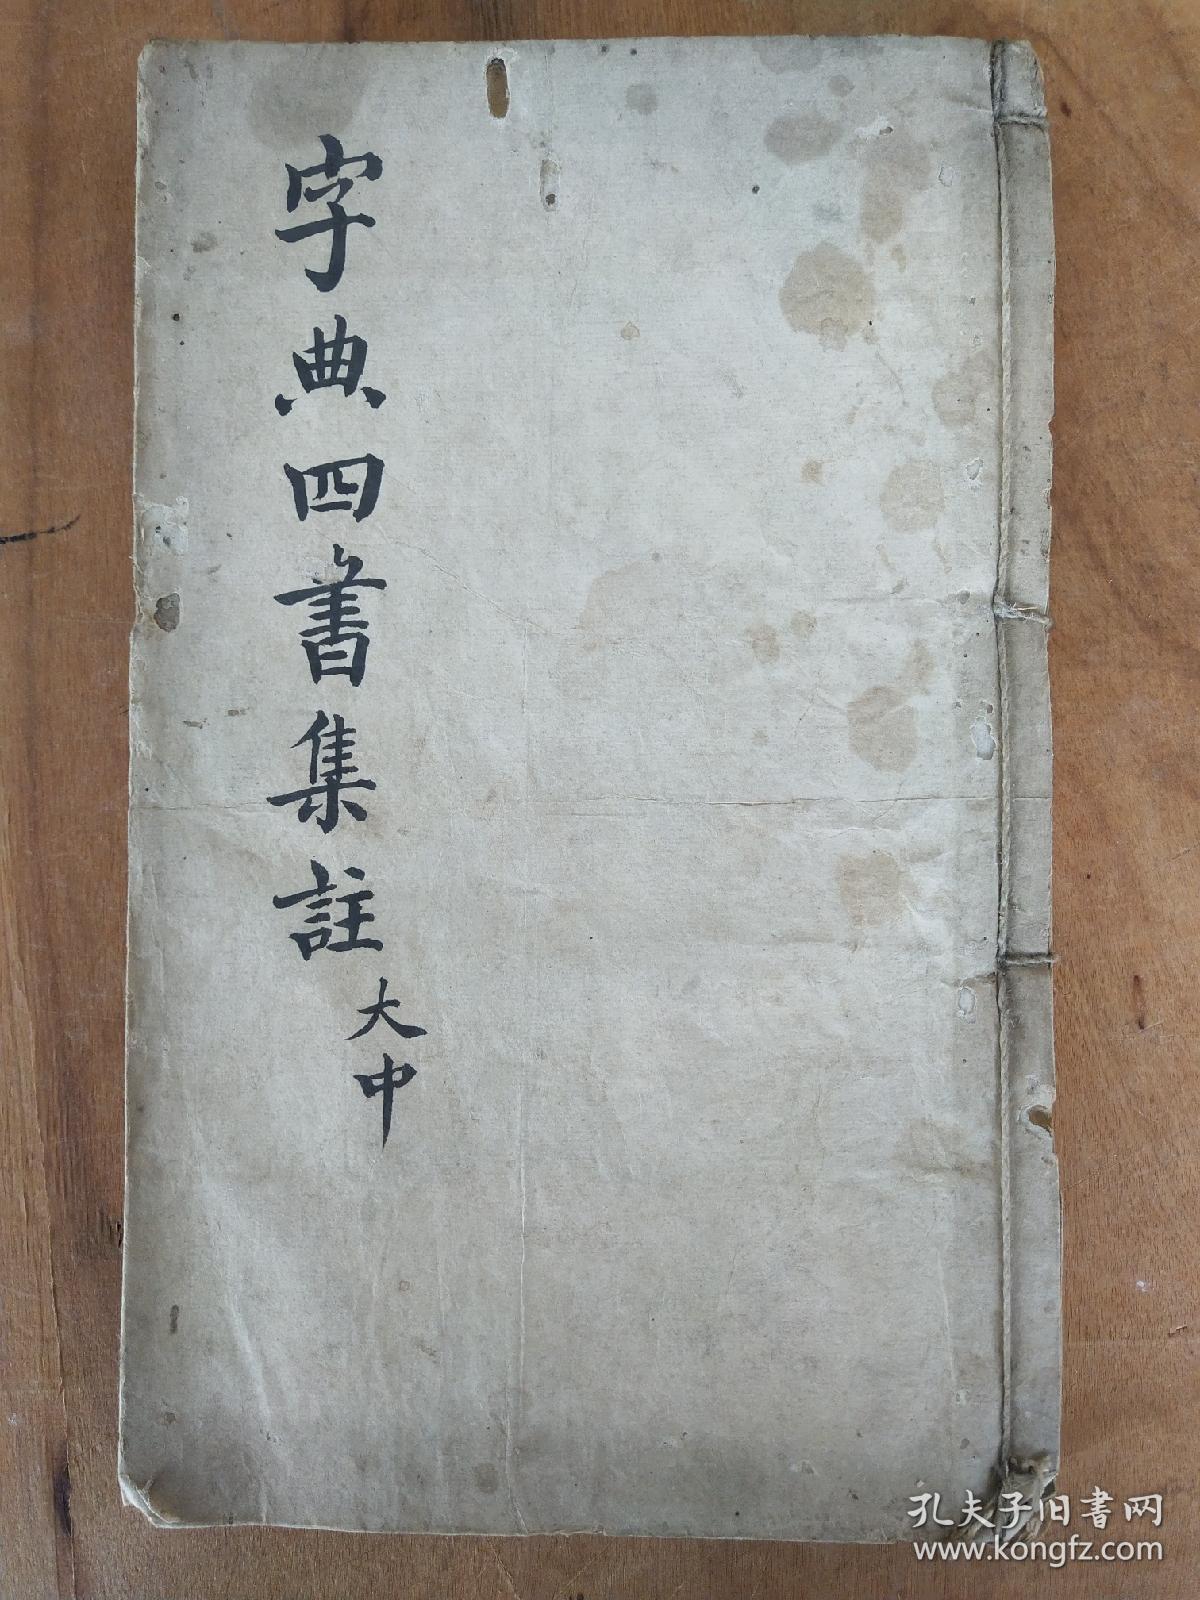 字典四書集註
大中
孔夫子旧書网
www.kongfz.com